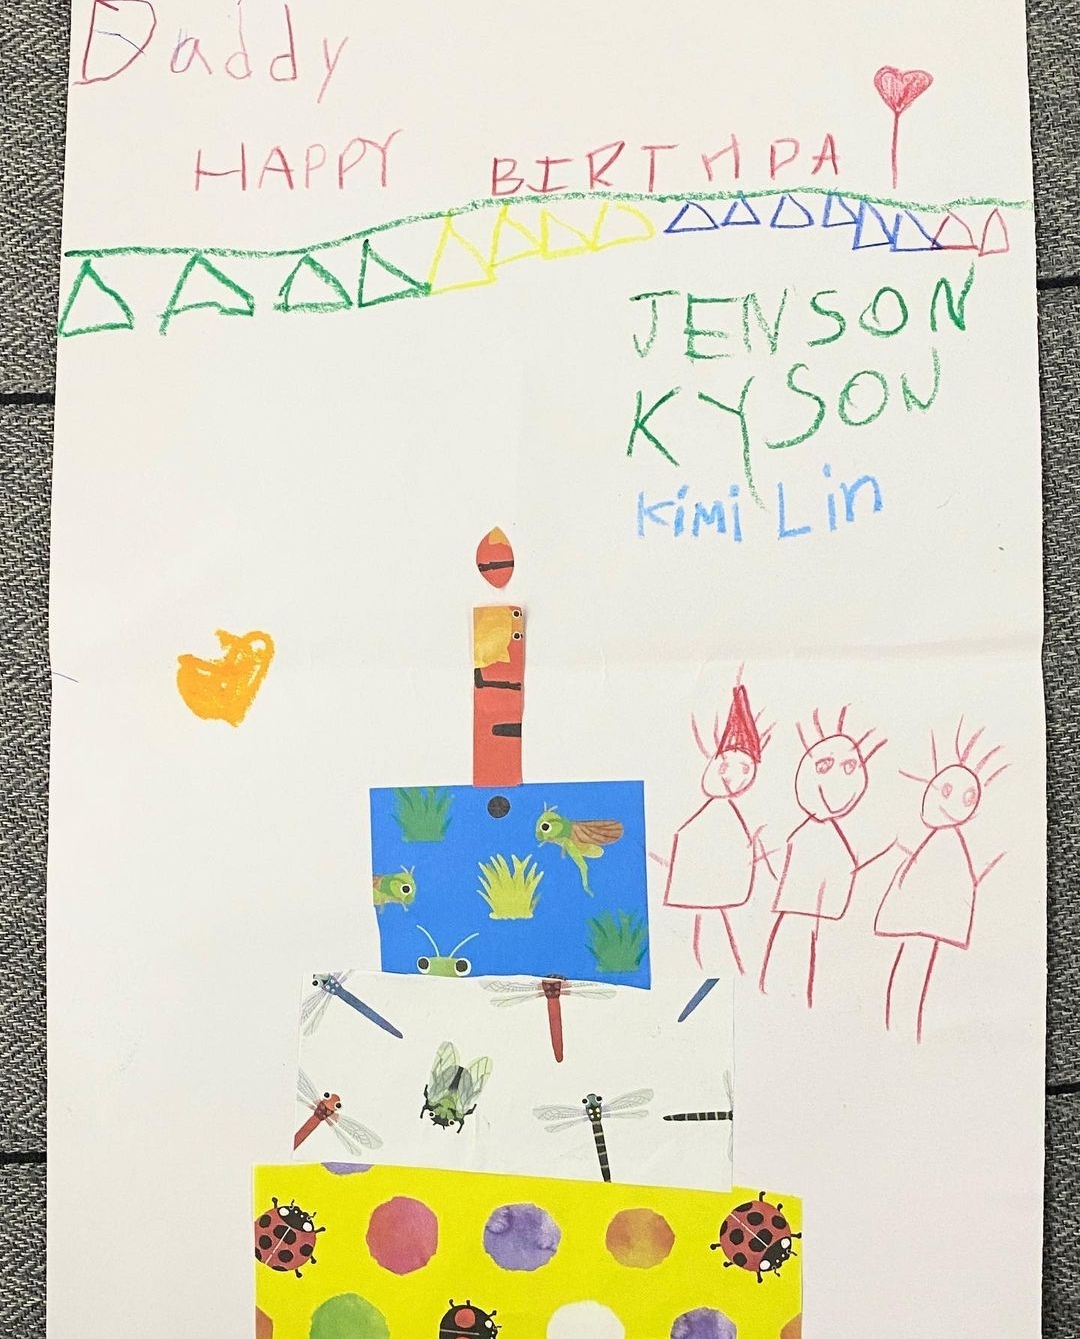 Daddy
HAPPY BIRTHDA
JENSON
KYSON
Kimi Lin